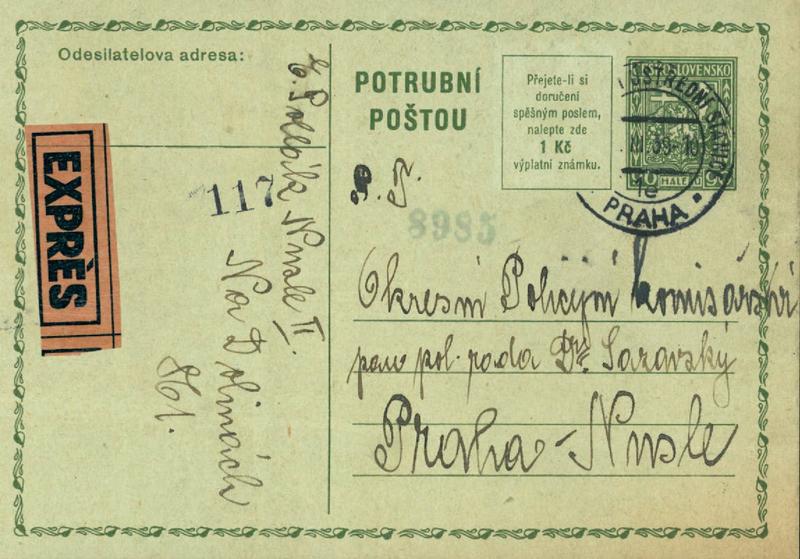 Odesilatelova adresa:
Nusle II.
Na Dolinách
POTRUBNÍ
POŠTOU
Přejete-li si
doručení
spěšným poslem,
nalepte zde
1 Kč
výplatní známku.
ČESKOSLOVENSKO
HALÉŘŮ
ÚSTŘEDNÍ STANICE
PRAHA
1e
EXPRÈS
117
8985
P. T.
Okresní Policejní komisařství
pan pol. rada Dr. Sazavský
Praha-Nusle